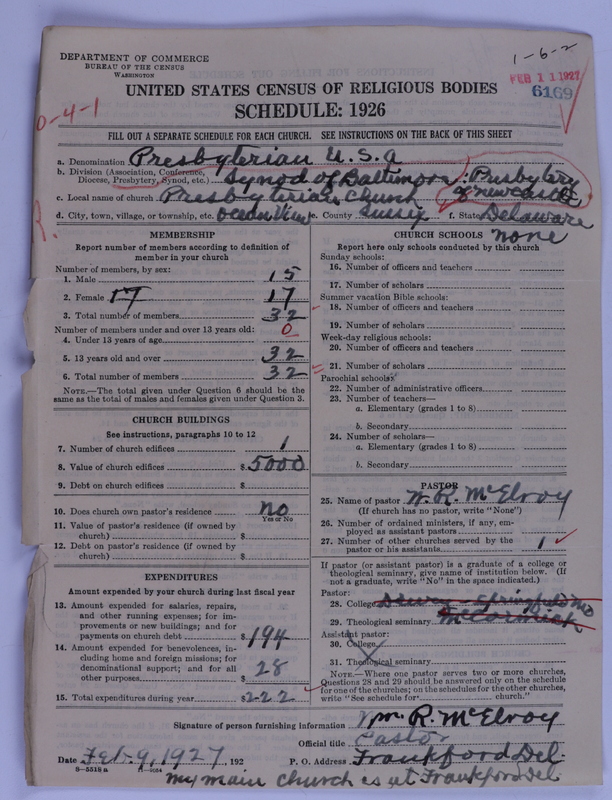 1-6-2
DEPARTMENT OF COMMERCE
BUREAU OF THE CENSUS
WASHINGTON
FEB 11 1927
6169
0-4-1
UNITED STATES CENSUS OF RELIGIOUS BODIES
SCHEDULE: 1926
FILL OUT A SEPARATE SCHEDULE FOR EACH CHURCH. SEE INSTRUCTIONS ON THE BACK OF THIS SHEET
a. Denomination Presbyterian U.S.A
b. Division (Association, Conference, Diocese, Presbytery, Synod, etc.) Synod of Baltimore: Presbytery of Newcastle
c. Local name of church Presbyterian Church
d. City, town, village, or township, etc. Ocean View e. County Sussex f. State Delaware
R.
MEMBERSHIP
Report number of members according to definition of
member in your church
Number of members, by sex:
1. Male 15
2. Female 17 17
3. Total number of members 32
Number of members under and over 13 years old: 0
4. Under 13 years of age
5. 13 years old and over 32
6. Total number of members 32
NOTE.—The total given under Question 6 should be the
same as the total of males and females given under Question 3.
CHURCH BUILDINGS
See instructions, paragraphs 10 to 12
7. Number of church edifices 1
8. Value of church edifices $5000
9. Debt on church edifices $
10. Does church own pastor's residence No
Yes or No
11. Value of pastor's residence (if owned by
church) $
12. Debt on pastor's residence (if owned by
church) $
EXPENDITURES
Amount expended by your church during last fiscal year
13. Amount expended for salaries, repairs,
and other running expenses; for im-
provements or new buildings; and for
payments on church debt $194
14. Amount expended for benevolences, in-
cluding home and foreign missions; for
denominational support; and for all
other purposes $28
15. Total expenditures during year $222
CHURCH SCHOOLS None
Report here only schools conducted by this church
Sunday schools:
16. Number of officers and teachers
17. Number of scholars
Summer vacation Bible schools:
18. Number of officers and teachers
19. Number of scholars
Week-day religious schools:
20. Number of officers and teachers
21. Number of scholars
Parochial schools:
22. Number of administrative officers
23. Number of teachers—
a. Elementary (grades 1 to 8)
b. Secondary
24. Number of scholars—
a. Elementary (grades 1 to 8)
b. Secondary
PASTOR
25. Name of pastor W. R. McElroy
(If church has no pastor, write "None")
26. Number of ordained ministers, if any, em-
ployed as assistant pastors
27. Number of other churches served by the
pastor or his assistants 1
If pastor (or assistant pastor) is a graduate of a college or
theological seminary, give name of institution below. (If
not a graduate, write "No" in the space indicated.)
Pastor:
28. College Drury - Springfield Mo
29. Theological seminary McCormick
Assistant pastor:
30. College
31. Theological seminary
NOTE.—Where one pastor serves two or more churches,
Questions 28 and 29 should be answered only on the schedule
for one of the churches; on the schedules for the other churches,
write "See schedule for church."
Signature of person furnishing information Wm. R. McElroy
Official title Pastor
Date Feb. 9, 1927, 192 P. O. Address Frankford Del.
8—5518a
My main church is at Frankford Del.